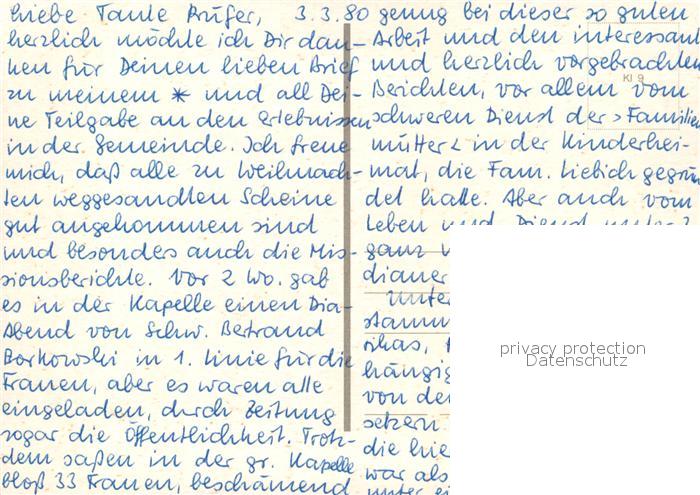 Liebe Tante Prüfer, 3.3.80
herzlich möchte ich Dir dan-
ken für Deinen lieben Brief
zu meinem * und all Dei-
ne Teilgabe an den Erlebnissen
in der Gemeinde. Ich freue
mich, daß alle zu Weihnach-
ten weggesandten Scheine
gut angekommen sind
und besonders auch die Mis-
sionsberichte. Vor 2 Wo. gab
es in der Kapelle einen Dia-
Abend von Schw. Bertrand
Borkowski in 1. Linie für die
Frauen, aber es waren alle
eingeladen, durch Zeitung
sogar die Öffentlichkeit. Trotz-
dem saßen in der gr. Kapelle
bloß 33 Frauen, beschämend
genug bei dieser so guten
Arbeit und den interessant
und herzlich vorgebrachten
Berichten, vor allem vom
schweren Dienst der >Familien
mütter< in der Kinderhei-
mat, die Fam. Liebich gegrün
det hatte. Aber auch vom
Leben und Dienst unter
ganz
dianer
Unter
stamm
rikas,
hängig
von de
setzen
die hie
war als
unter ei
Kl 9
privacy protection
Datenschutz